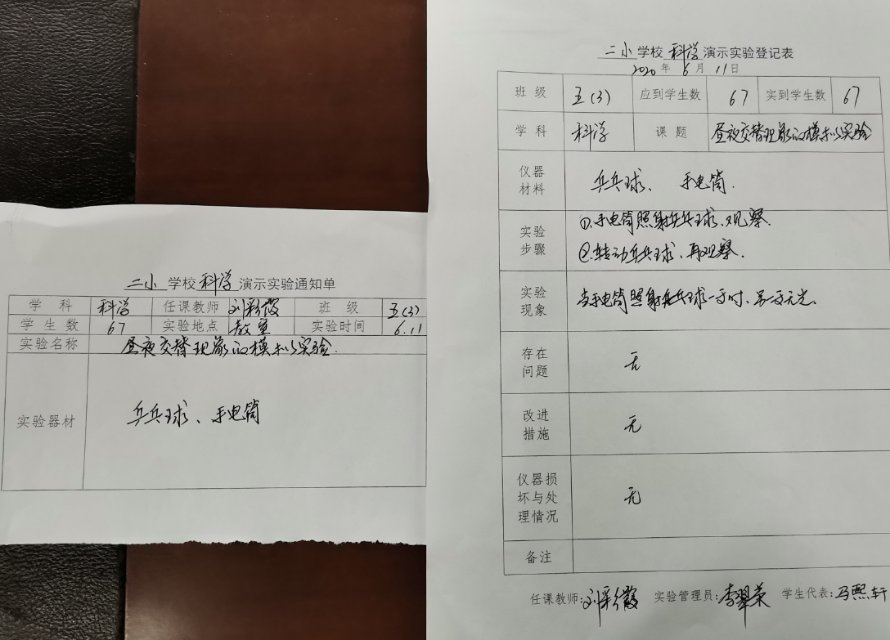 二小 学校 科学 演示实验通知单
学科 科学 任课教师 刘彩霞 班级 五(3)
学生数 67 实验地点 教室 实验时间 6.11
实验名称 昼夜交替现象的模拟实验.
实验器材 乒乓球、手电筒
二小 学校 科学 演示实验登记表
2020年6月11日
班级 五(3) 应到学生数 67 实到学生数 67
学科 科学 课题 昼夜交替现象的模拟实验
仪器材料 乒乓球、 手电筒.
实验步骤 ①.手电筒照射乒乓球、观察.
②.转动乒乓球、再观察.
实验现象 当手电筒照射乒乓球一方时、另一方无光.
存在问题 无
改进措施 无
仪器损坏与处理情况 无
备注
任课教师:刘彩霞 实验管理员:李翠荣 学生代表:马熙轩